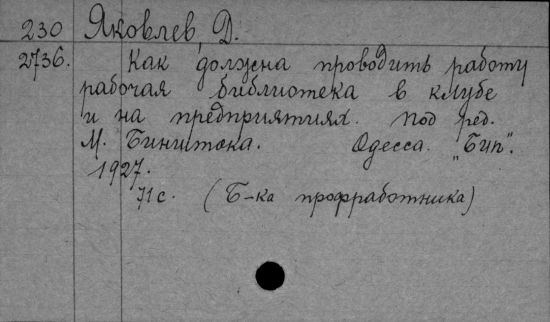 230 Яковлев, Д.
2736. Как должна проводить работу
рабочая библиотека в клубе
и на предприятиях. Под ред.
М. Бинштока. Одесса. "Бип".
1927.
71 с. (Б-ка профработника)